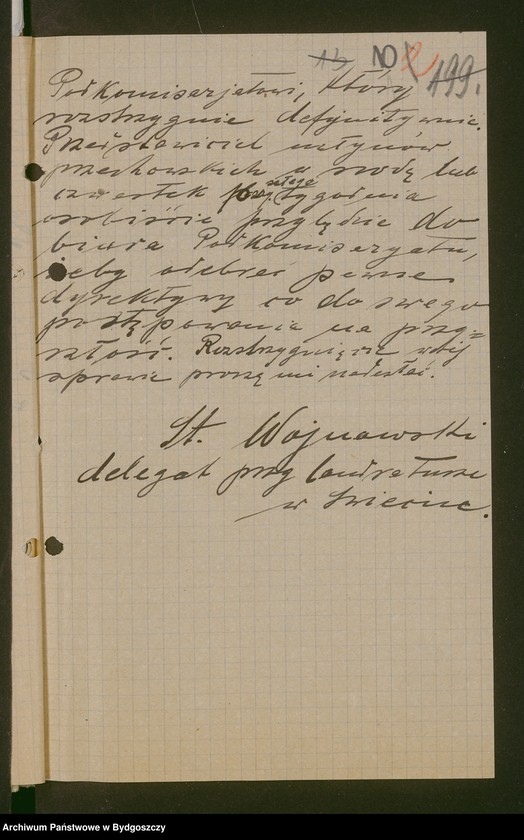 13 NO 2 199.
Podkomisarjatowi, który
rozstrzygnie definitywnie.
Przedstawiciel młynów
przechowskich w środę lub
czwartek przyszłego tygodnia
osobiście przyjdzie do
biura Podkomisarjatu,
żeby odebrać pewne
dyrektywy co do swego
postępowania na przy=
szłość. Rozstrzygnięcie w tej
sprawie proszę mi nadesłać.
St. Wojnowski
delegat przy landraturze
w Świeciu.
Archiwum Państwowe w Bydgoszczy